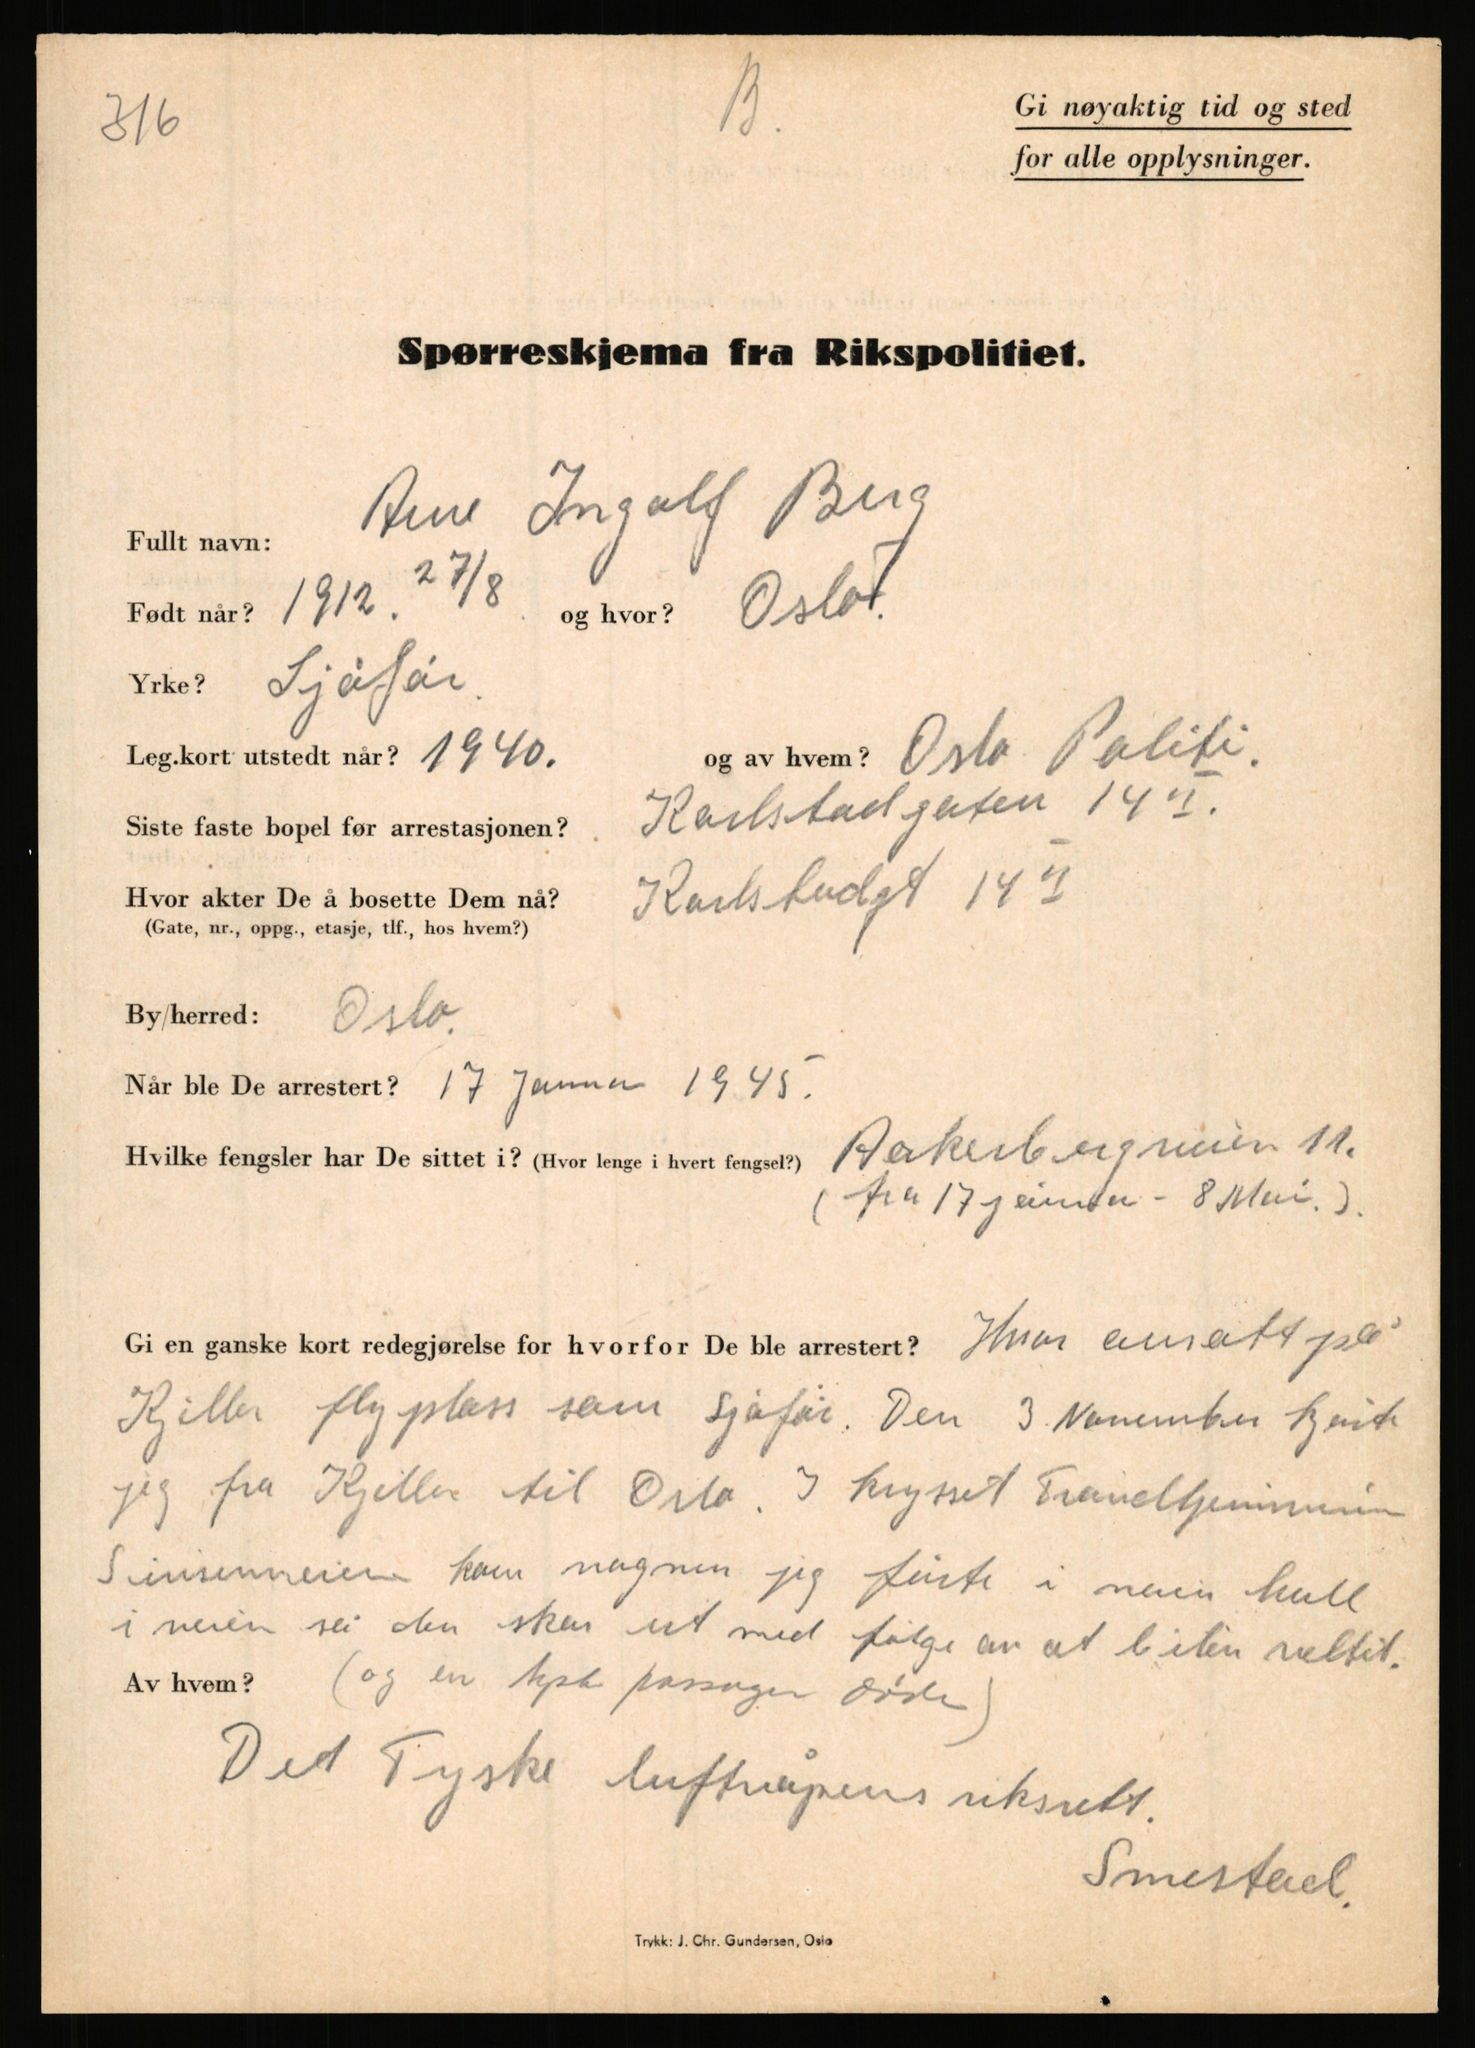 316
B.
Gi nøyaktig tid og sted
for alle opplysninger.
Spørreskjema fra Rikspolitiet.
Fullt navn: Arne Ingolf Berg
Født når? 1912. 27/8 og hvor? Oslo.
Yrke? Sjåfør.
Leg.kort utstedt når? 1940. og av hvem? Oslo Politi.
Siste faste bopel før arrestasjonen? Karlstadgaten 14 II.
Hvor akter De å bosette Dem nå? Karlstadgt 14 II
(Gate, nr., oppg., etasje, tlf., hos hvem?)
By/herred: Oslo.
Når ble De arrestert? 17 Januar 1945.
Hvilke fengsler har De sittet i? (Hvor lenge i hvert fengsel?) Aakerbergveien 11.
(fra 17 januar - 8 Mai.).
Gi en ganske kort redegjørelse for hvorfor De ble arrestert? ansatt på
Kjeller flyplass som sjåfør. Den 3 November kjørte
jeg fra Kjeller til Oslo. I krysset Trondhjemsveien
Sinsenveien kom vognen jeg førte i hull
i veien så den skar ut med følge av at bilen veltet.
Av hvem? (og en passager døde)
Det Tyske luftvåpens riksrett.
Smestad.
Trykk: J. Chr. Gundersen, Oslo